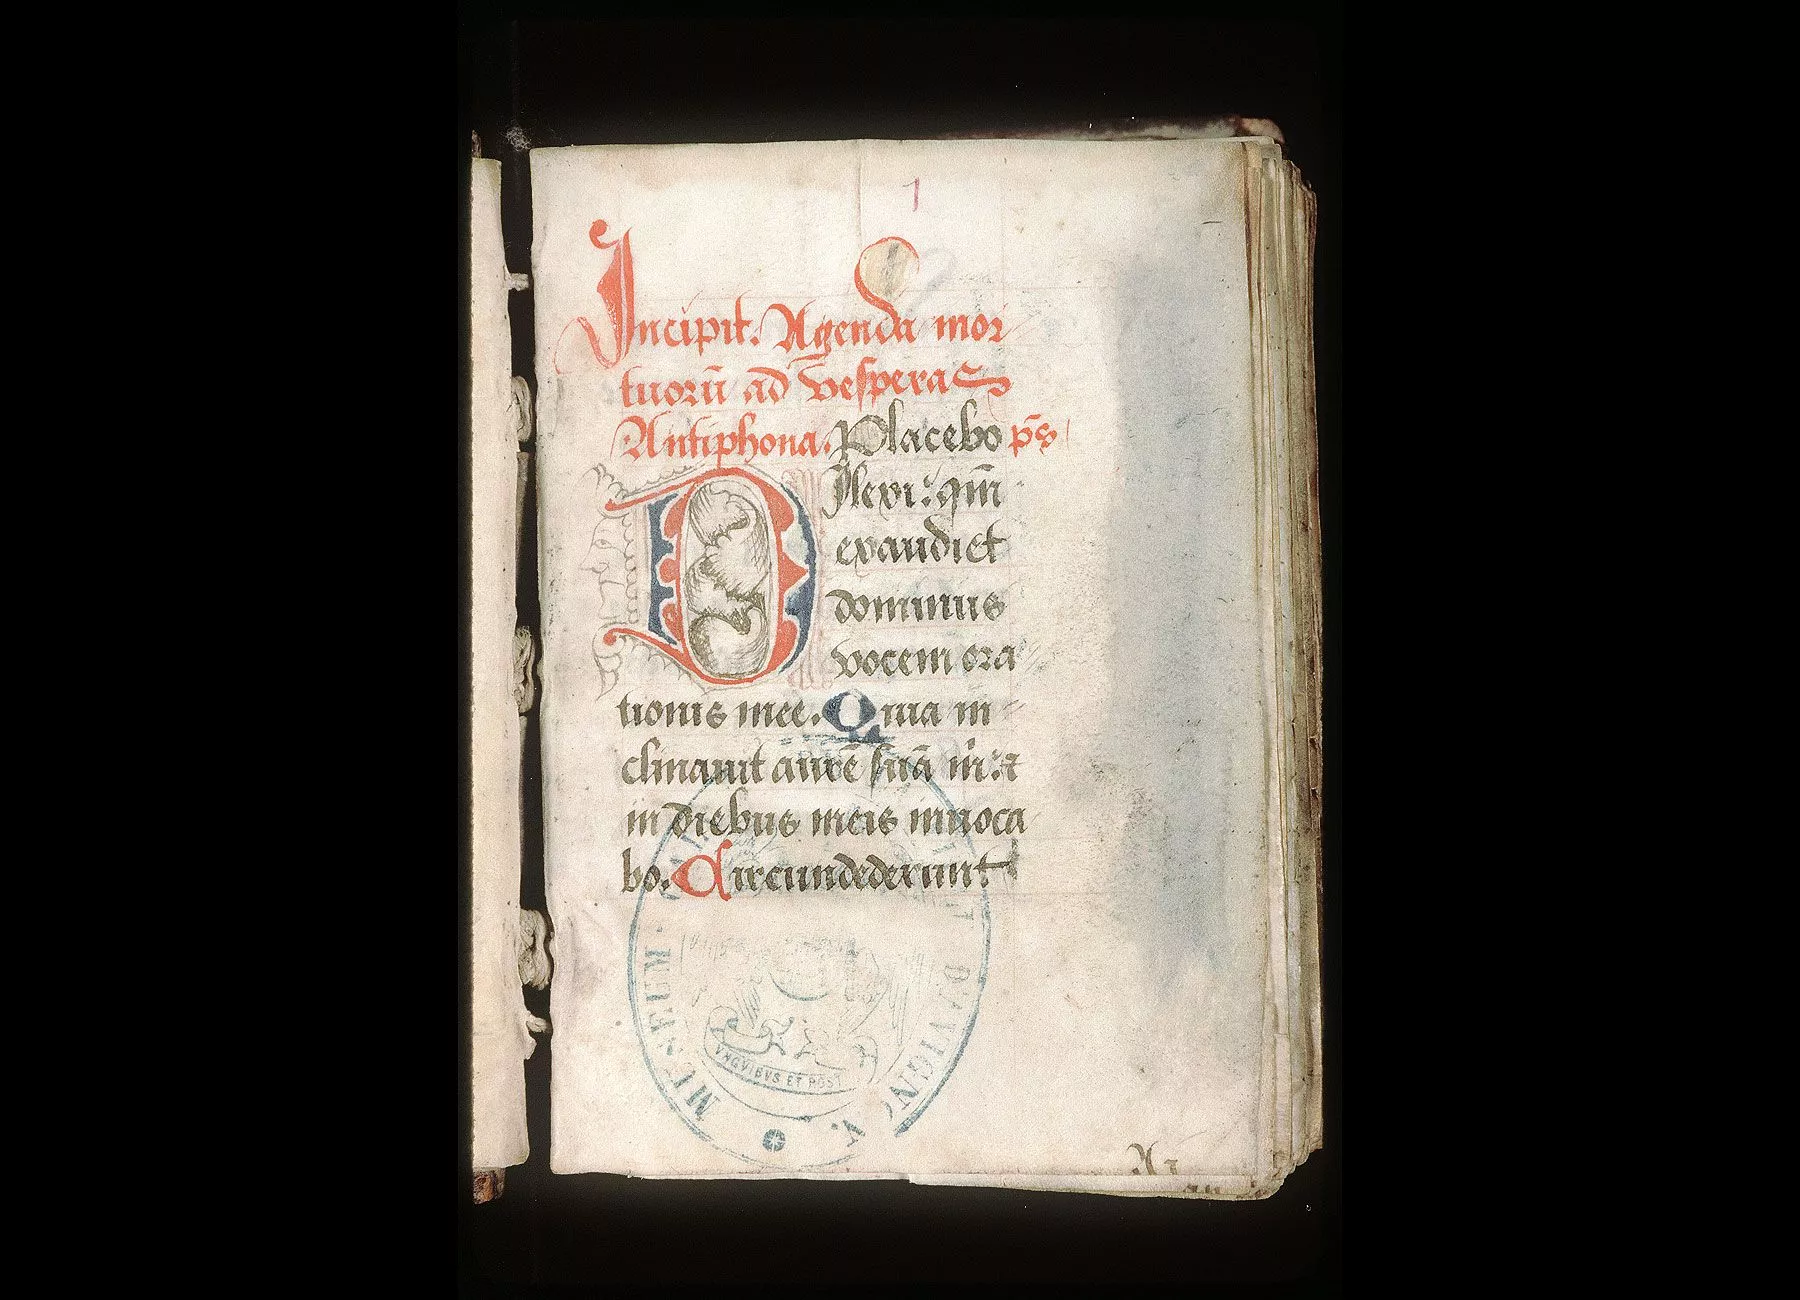 1
Incipit. Agenda mor
tuorū ad vesperas
Antiphona. Placebo p̄s
Dilexi: qm̄
exaudiet
dominus
vocem ora
tionis mee. Quia in
clinauit aurē suā m̄: ⁊
in diebus meis inuoca
bo. Circundederunt
MVSEVM
D'AVIGNON
VNGVIBVS ET ROST